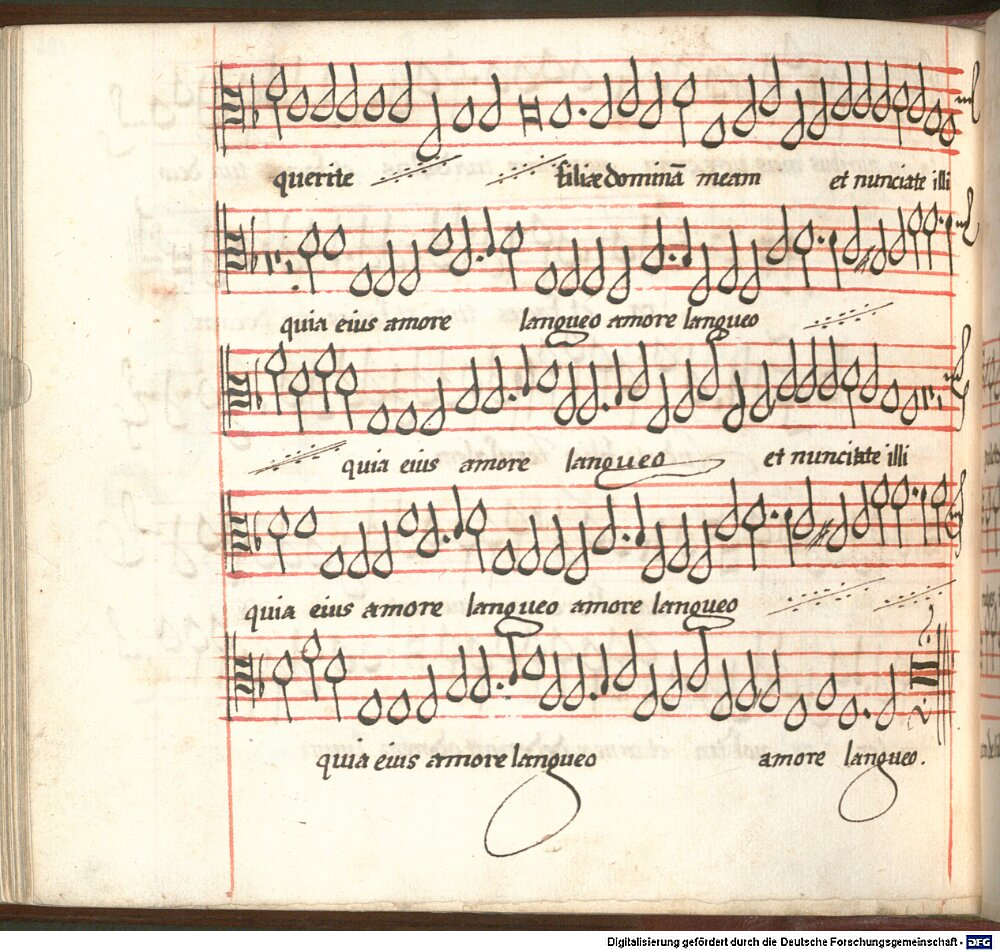 querite filiæ dominā meam et nunciate illi
quia eius amore langueo amore langueo
quia eius amore langueo et nunciate illi
quia eius amore langueo amore langueo
quia eius amore langueo amore langueo.
Digitalisierung gefördert durch die Deutsche Forschungsgemeinschaft - DFG